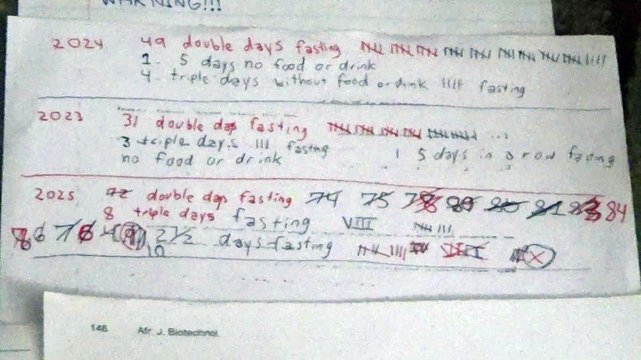 WARNING!!!
2024 49 double days fasting
1 - 5 days no food or drink
4 - triple days without food or drink IIII fasting
2023 31 double days fasting
3 triple days III fasting
1 5 days in a row fasting
no food or drink
2025 72 double days fasting 74 75 84
8 triple days fasting VIII
2 1/2 days fasting
10
146 Afr. J. Biotechnol.